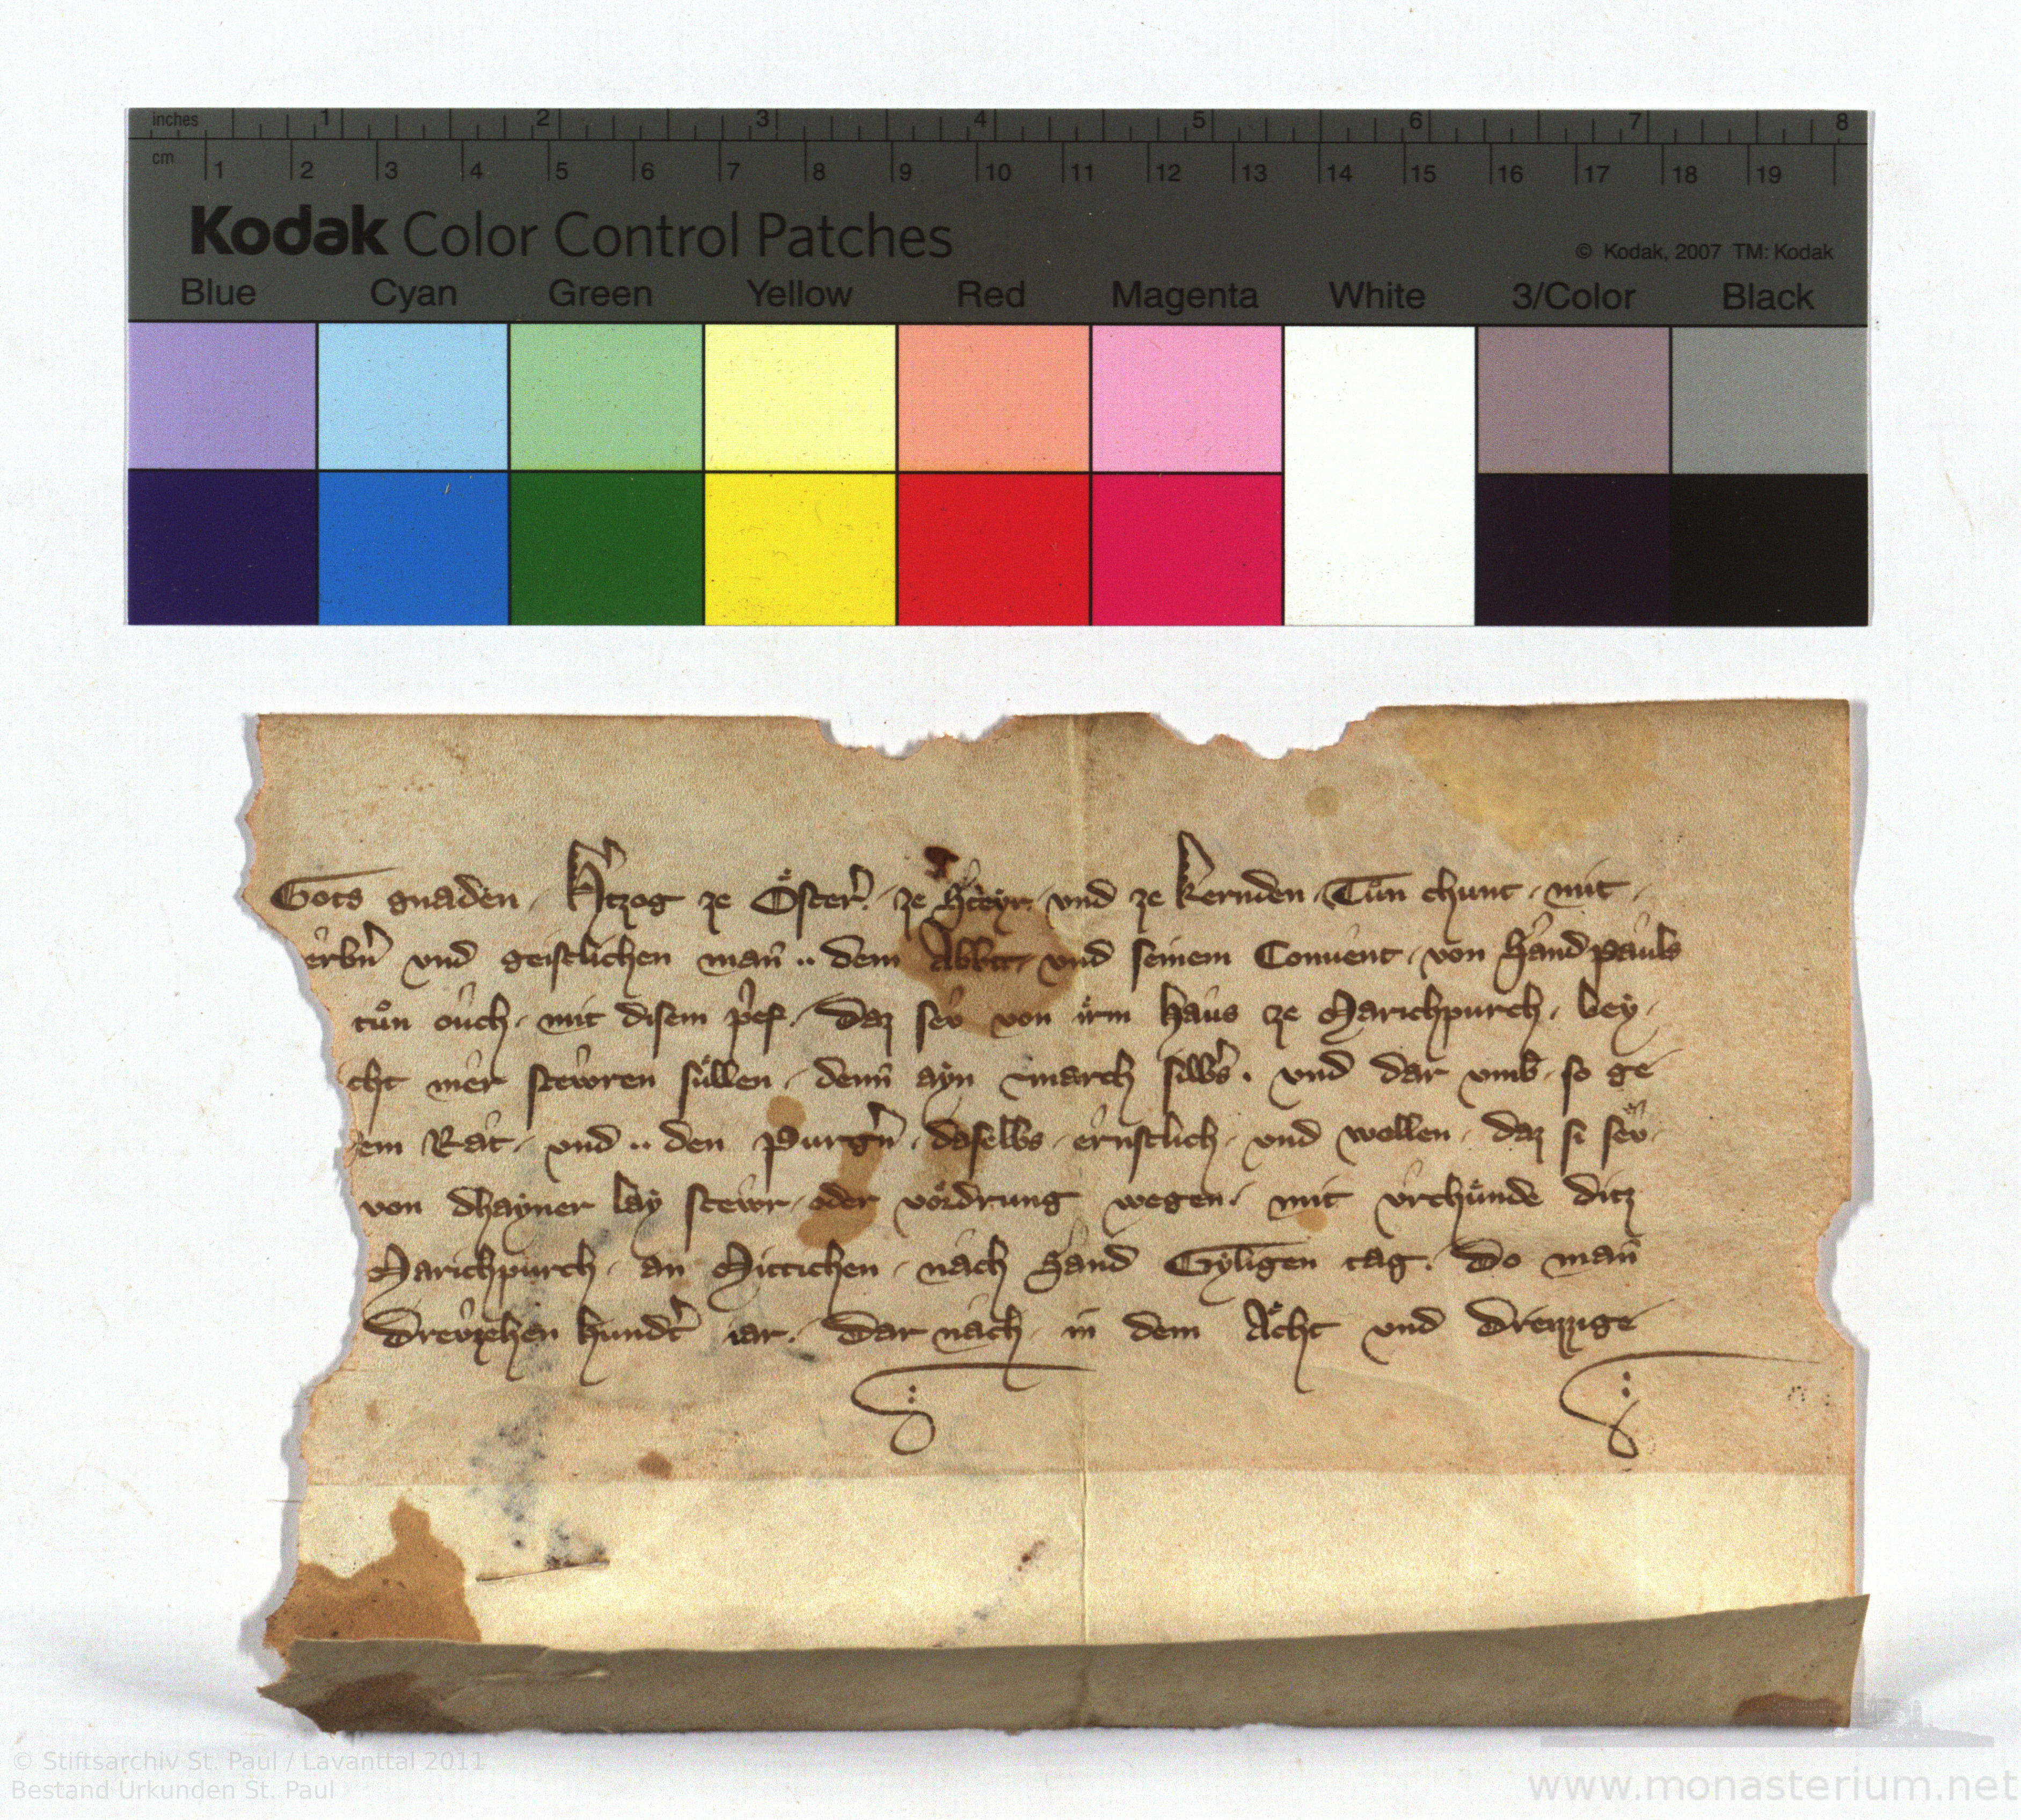 inches 1 2 3 4 5 6 7 8
cm 1 2 3 4 5 6 7 8 9 10 11 12 13 14 15 16 17 18 19
Kodak Color Control Patches
© Kodak, 2007 TM: Kodak
Blue Cyan Green Yellow Red Magenta White 3/Color Black
Gots gnaden, Htzog ze Ôster. ze Steyr. vnd ze kernden. Tůn chunt. mit.
erbn vnd geistlichen man .. dem Abbtt. vnd seinem Conuent. von Sand pauls
tůn ouch. mit disem pref. Daz sev von irm haus ze Marichpurch. bey.
cht mer stewren süllen. denn ayn march silbs. vnd dar vmb. so ge
em Rat. vnd .. den Purgn. daselbs. ernstlich. vnd wollen. daz si sev.
von dhayner lay stewr. oder vordrung wegen. mit vrchünde ditz
Marichpurch. an Mittichen. nach Sand Gyligen tag. Do man
Drevzehen hundt iar. Dar nach. in dem Acht vnd Dreizzige
© Stiftsarchiv St. Paul / Lavanttal 2011
Bestand Urkunden St. Paul
www.monasterium.net